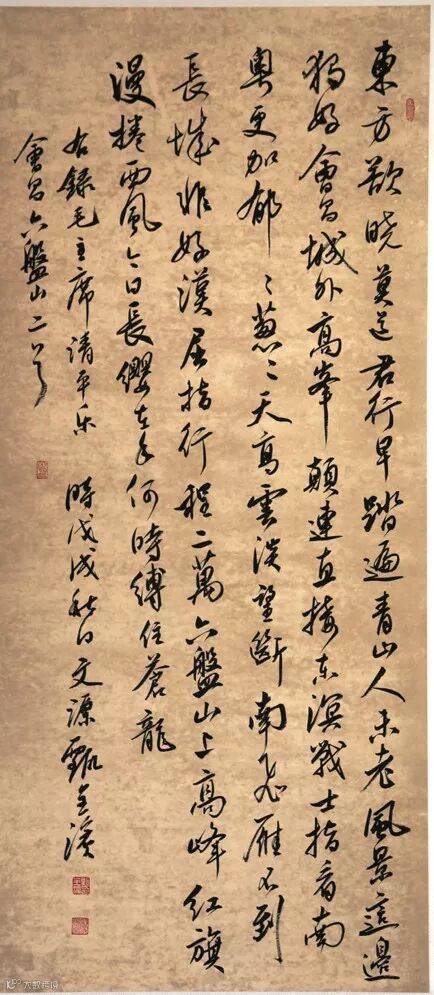 東方欲曉莫道君行早踏遍青山人未老風景這邊
獨好會昌城外高峯顛連直接东溟戰士指看南
粵更加郁〻葱〻天高雲淡望斷南飛雁不到
長城非好漢屈指行程二萬六盤山上高峰紅旗
漫捲西風今日長纓在手何時縛住蒼龍
右錄毛主席清平乐
會昌六盤山二首
時戊戌秋日文源甄